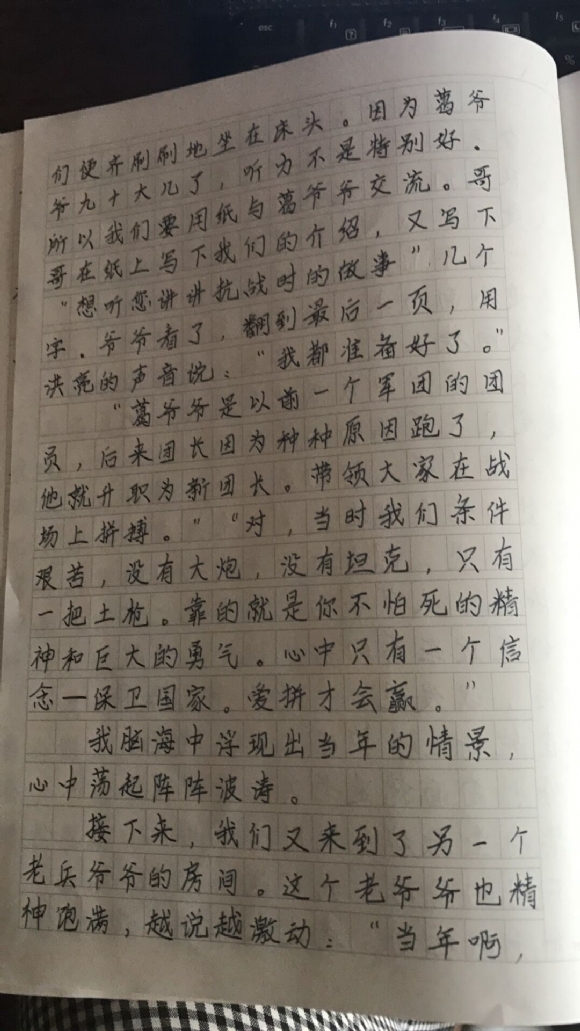 们便齐刷刷地坐在床头。因为葛爷
爷九十大几了，听力不是特别好．
所以我们要用纸与葛爷爷交流。哥
哥在纸上写下我们的介绍，又写下
“想听您讲讲抗战时的故事”几个
字．爷爷看了，翻到最后一页，用
洪亮的声音说：“我都准备好了。”
“葛爷爷是以前一个军团的团
员，后来团长因为种种原因跑了，
他就升职为新团长。带领大家在战
场上拼搏。”“对，当时我们条件
艰苦，没有大炮，没有坦克，只有
一把土枪。靠的就是你不怕死的精
神和巨大的勇气。心中只有一个信
念—保卫国家。爱拼才会赢。”
我脑海中浮现出当年的情景，
心中荡起阵阵波涛。
接下来，我们又来到了另一个
老兵爷爷的房间。这个老爷爷也精
神饱满，越说越激动：“当年啊，
esc
f1
f2
f3
f4
f5